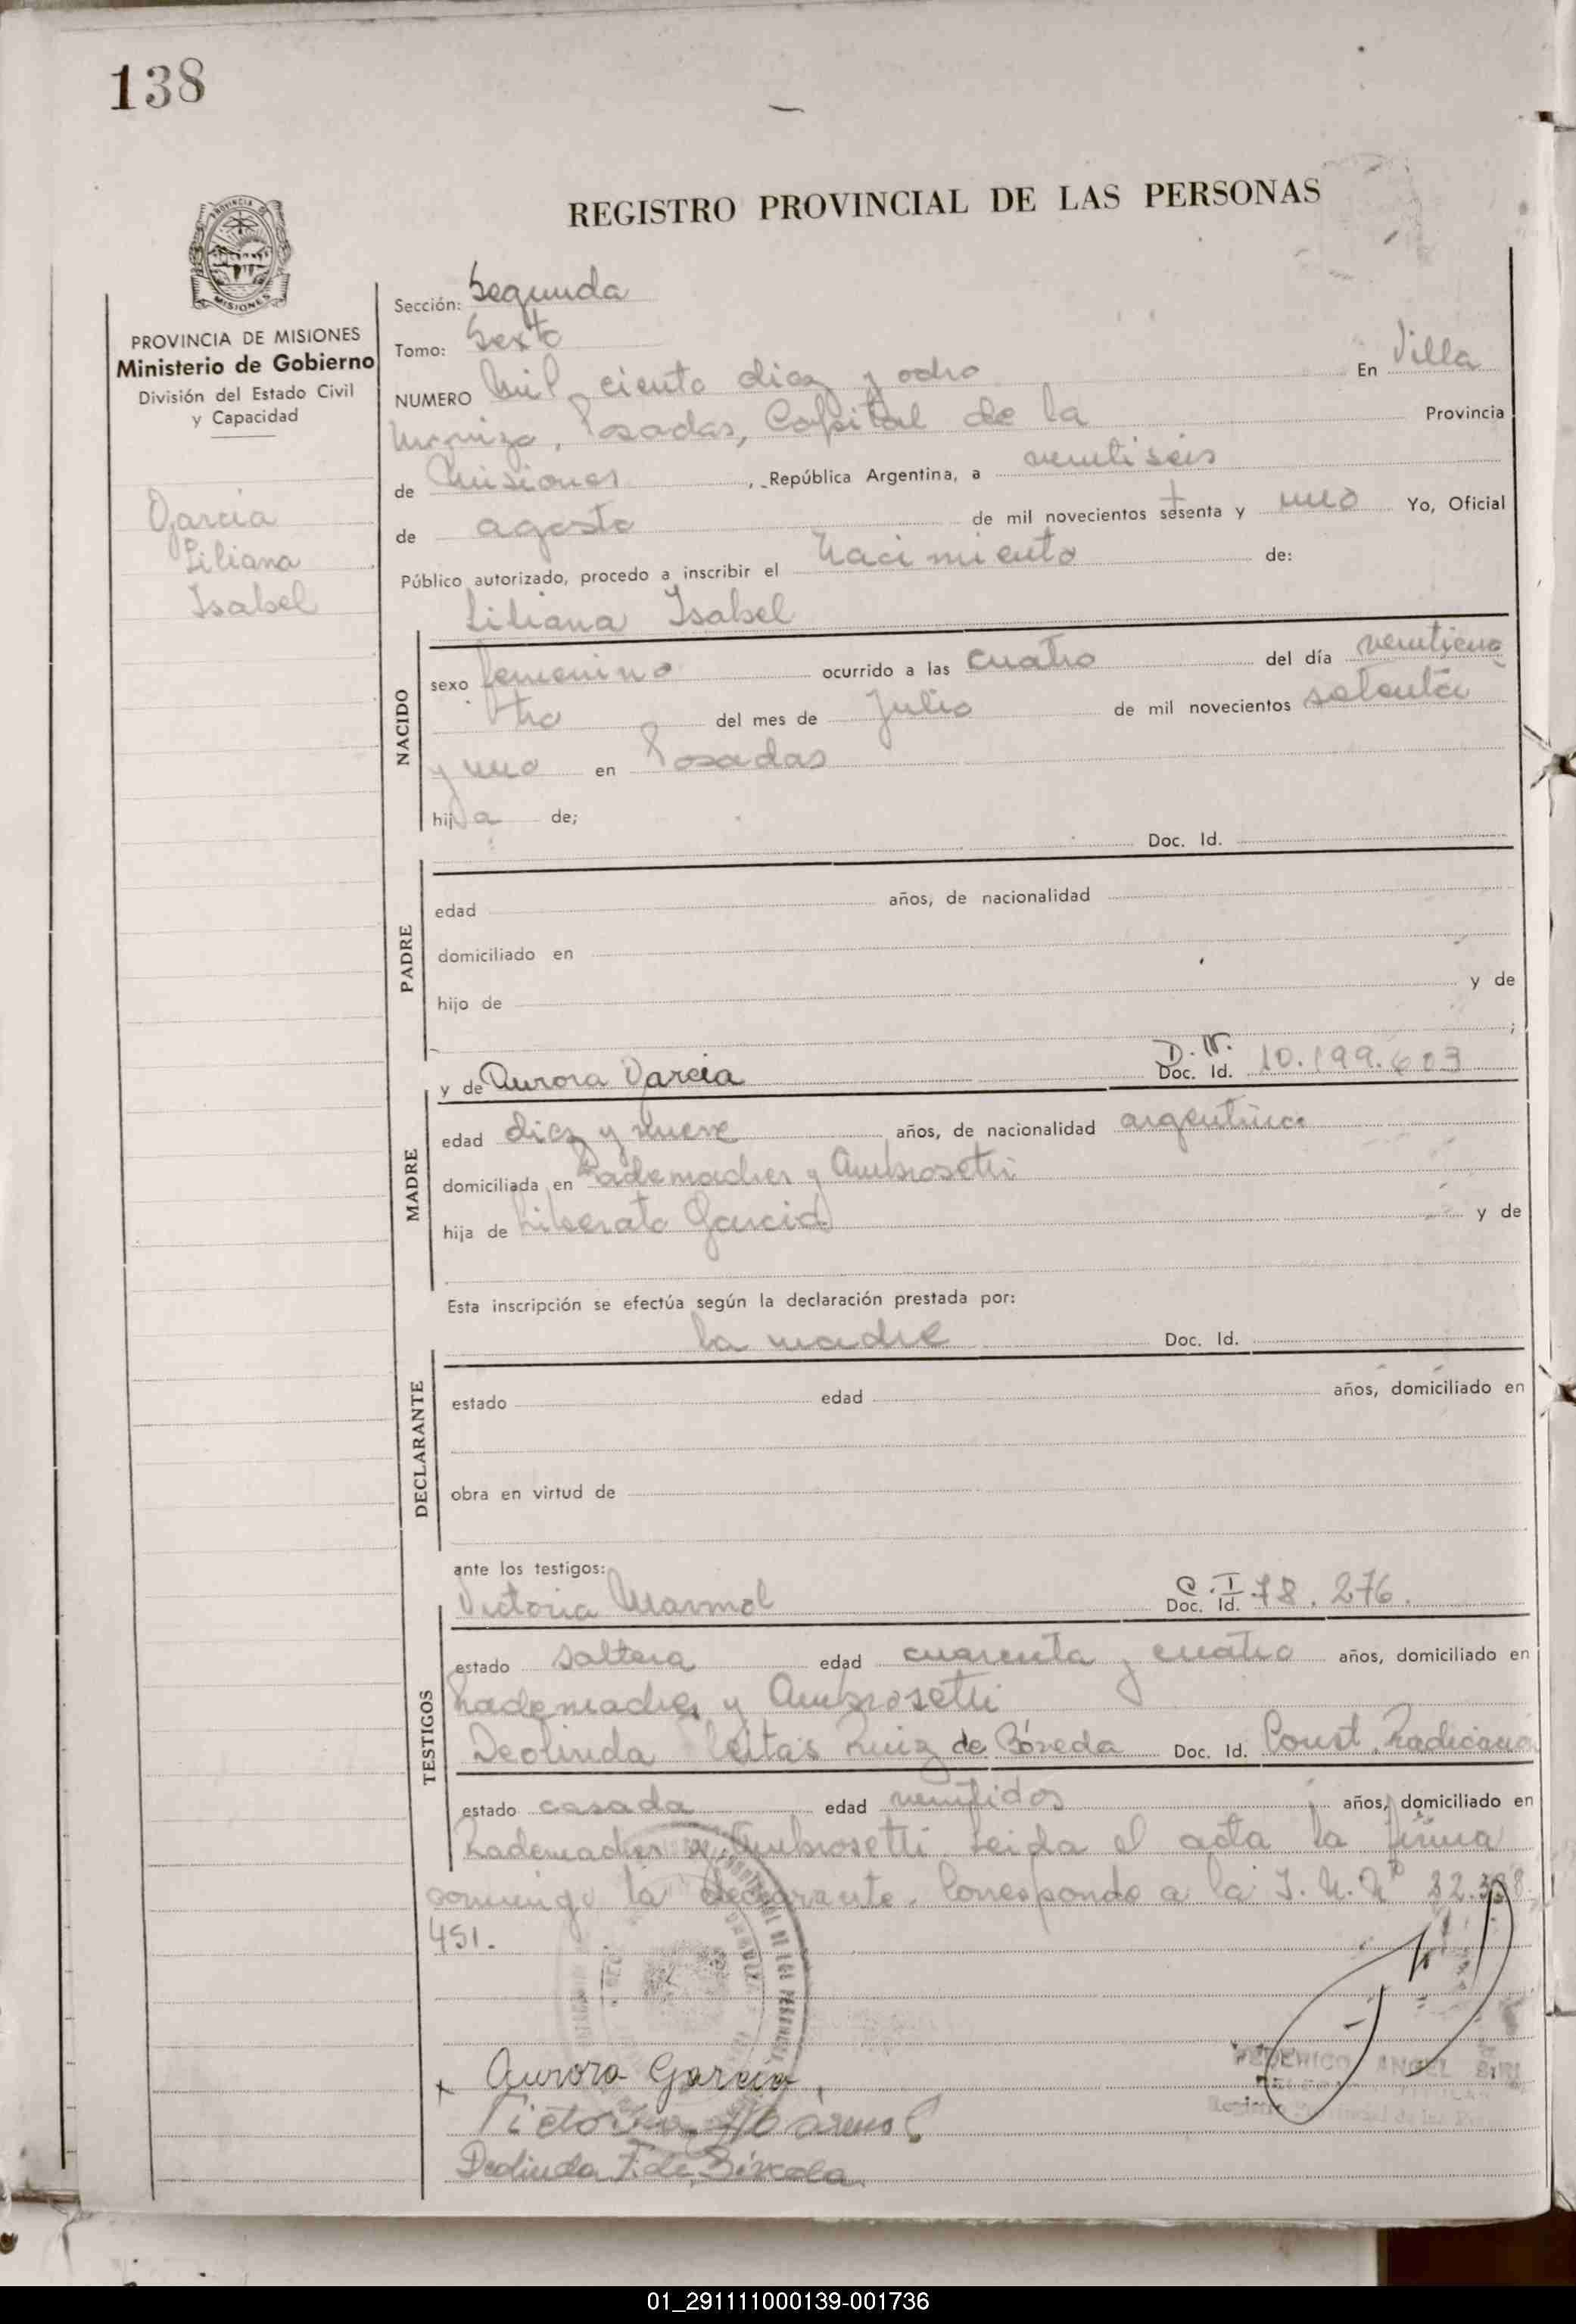 138
REGISTRO PROVINCIAL DE LAS PERSONAS
PROVINCIA DE MISIONES
Ministerio de Gobierno
División del Estado Civil
y Capacidad
Garcia
Liliana
Isabel
Sección: Segunda
Tomo: Sexto
NUMERO mil ciento diez y ocho En Villa
Urquiza, Posadas, Capital de la Provincia
de Misiones, República Argentina, a veintiseis
de agosto de mil novecientos setenta y uno Yo, Oficial
Público autorizado, procedo a inscribir el nacimiento de:
Liliana Isabel
NACIDO
sexo femenino ocurrido a las cuatro del día veinticua
tro del mes de Julio de mil novecientos setenta
y uno en Posadas
hija de;
Doc. Id.
PADRE
edad años, de nacionalidad
domiciliado en
hijo de y de
;
y de Aurora Garcia D.N. Doc. Id. 10.199.603
MADRE
edad diez y nueve años, de nacionalidad argentina
domiciliada en Rademacher y Ambrosetti
hija de Liberato Garcia y de
Esta inscripción se efectúa según la declaración prestada por:
la madre Doc. Id.
DECLARANTE
estado edad años, domiciliado en
obra en virtud de
ante los testigos:
Victoria Marmol C.I. Doc. Id. 78.276.
TESTIGOS
estado soltera edad cuarenta y cuatro años, domiciliado en
Rademacher y Ambrosetti
Deolinda Leitas Ruiz de Bóveda Doc. Id. Const. Radicación
estado casada edad veintidos años, domiciliado en
Rademacher y Ambrosetti. Leida el acta la firma
conmigo la declarante. Corresponde a la I.N.Nº 22.
451.
Aurora Garcia
Victoria Marmol
Deolinda F. de
FEDERICO ANGEL
01_291111000139-001736